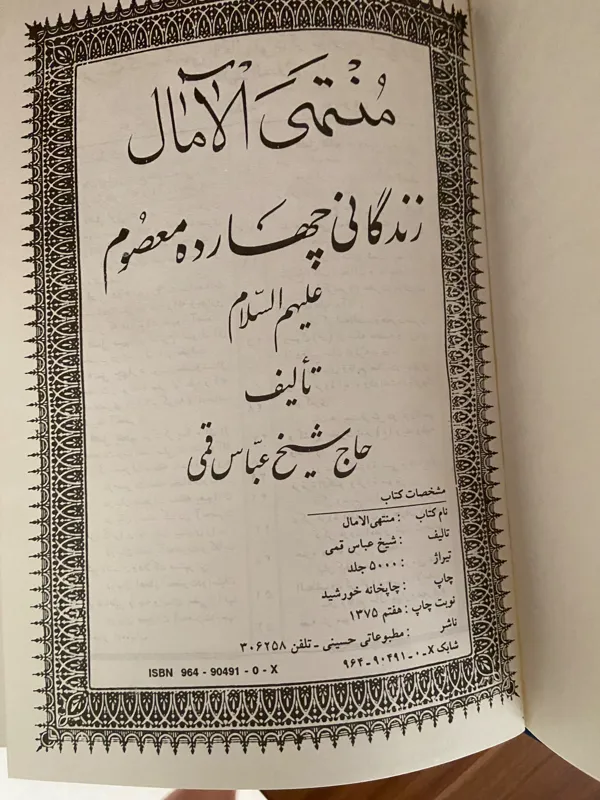 مُنتَهَی الآمٰال
زندگانی چهارده معصوم
علیهم السّلام
تألیف
حاج شیخ عبّاس قمی
مشخصات کتاب
نام کتاب : منتهی الامال
تالیف : شیخ عباس قمی
تیراژ : ۵۰۰۰ جلد
چاپ : چاپخانه خورشید
نوبت چاپ : هفتم ۱۳۷۵
ناشر : مطبوعاتی حسینی ـ تلفن ۳۰۶۲۵۸
شابک X-۰-۹۰۴۹۱-۹۶۴
ISBN 964 - 90491 - 0 - X